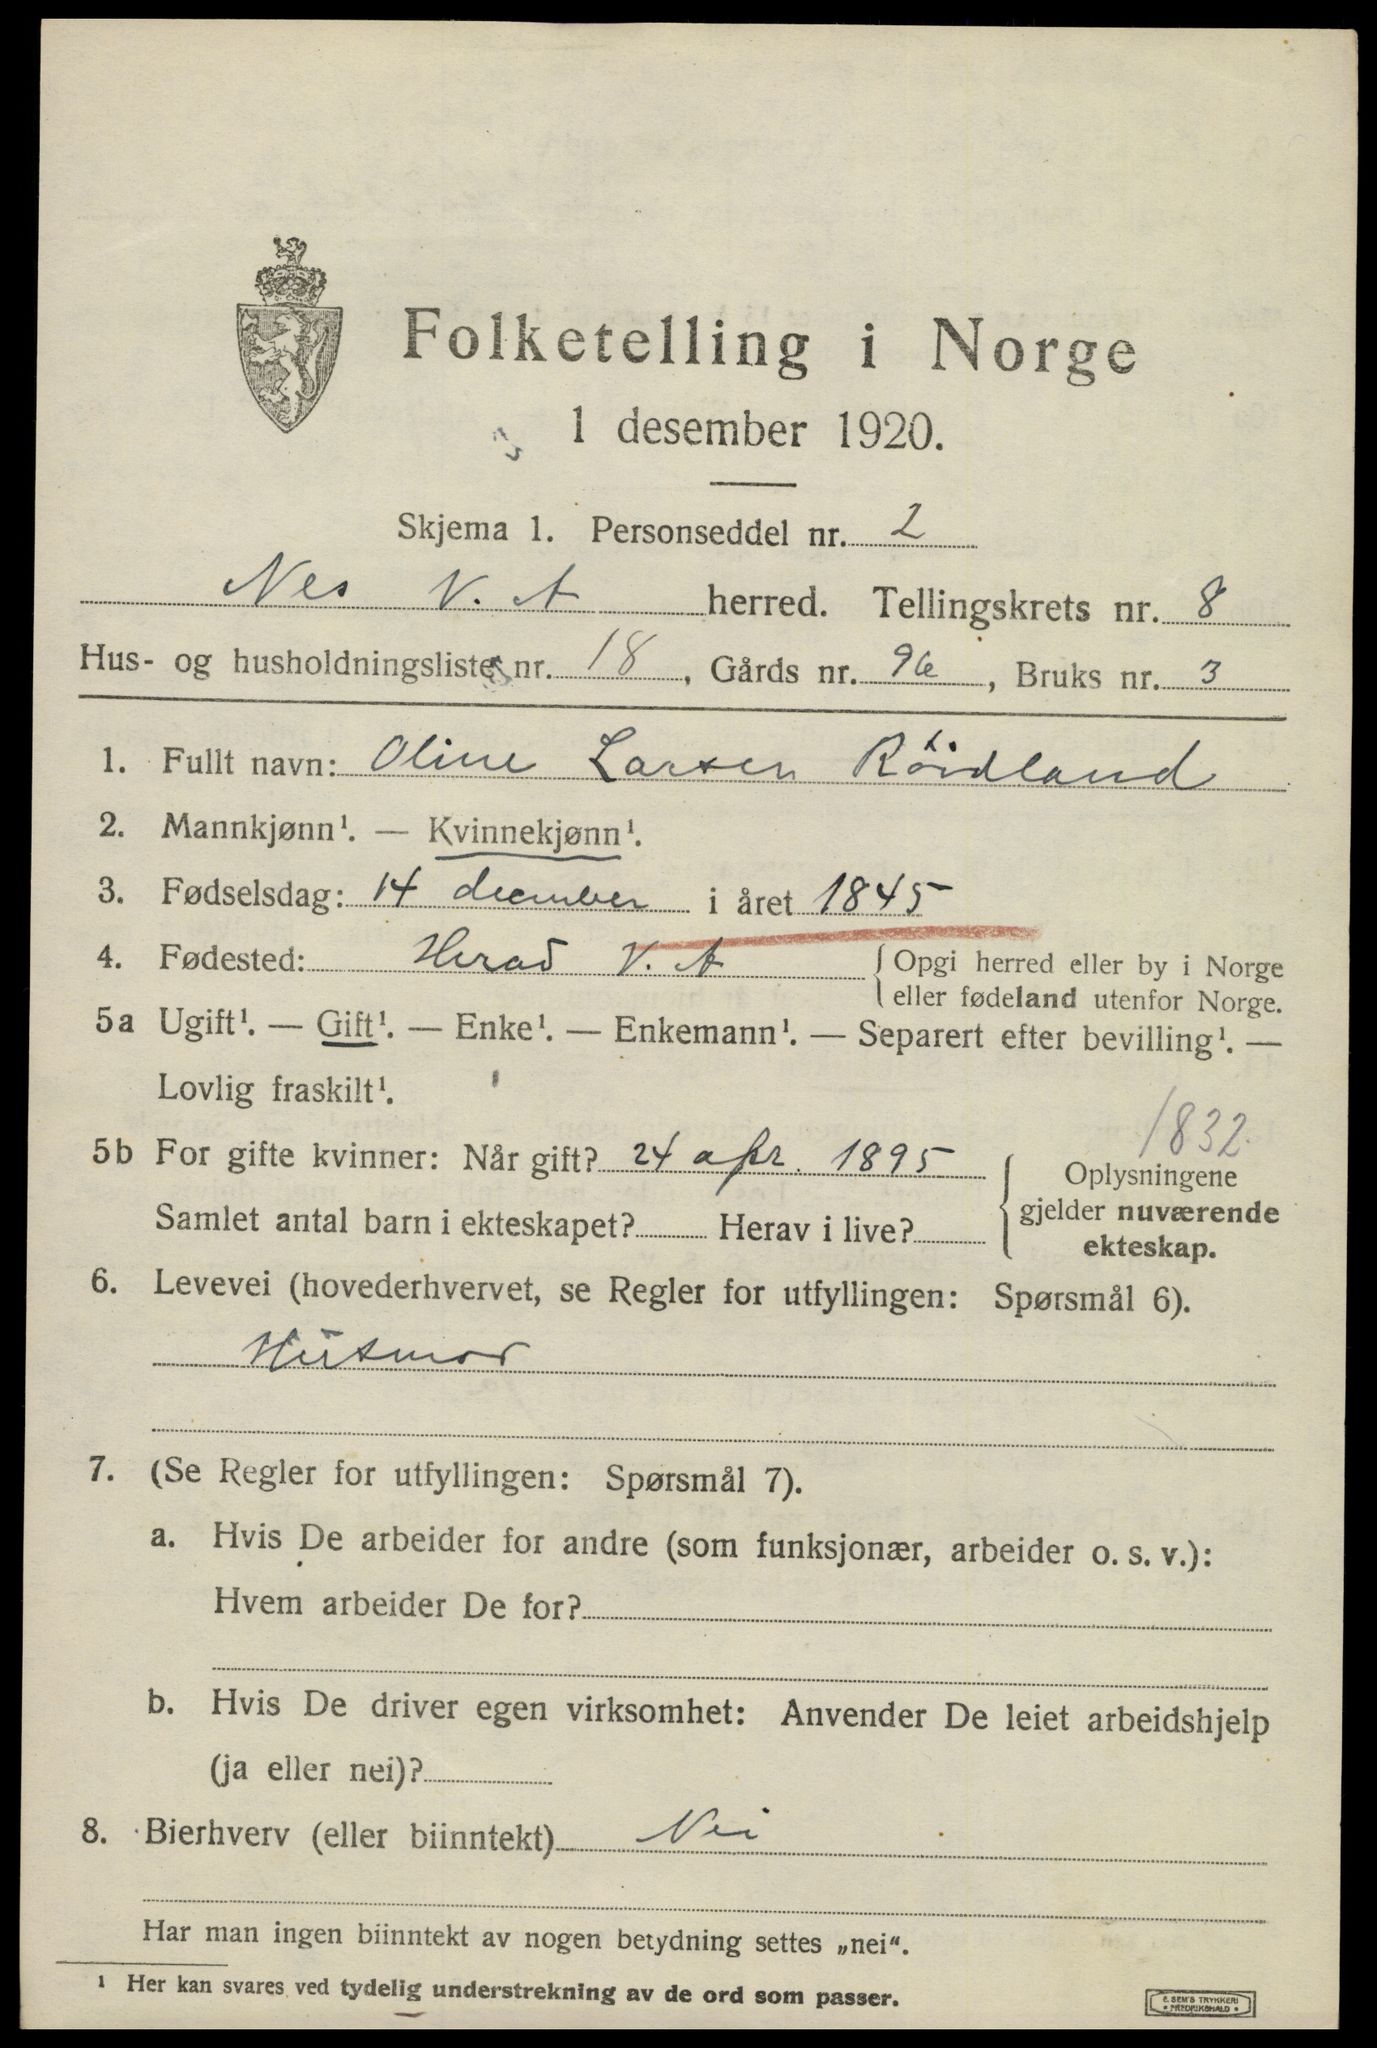 Folketelling i Norge
1 desember 1920.
Skjema 1. Personseddel nr. 2
Nes V. A herred. Tellingskrets nr. 8
Hus- og husholdningsliste nr. 18, Gårds nr. 96, Bruks nr. 3
1. Fullt navn: Oline Larsen Röidland
2. Mannkjønn¹. — Kvinnekjønn¹.
3. Fødselsdag: 14 december i året 1845
4. Fødested: Herad V. A { Opgi herred eller by i Norge
eller fødeland utenfor Norge.
5a Ugift¹. — Gift¹. — Enke¹. — Enkemann¹. — Separert efter bevilling¹. —
Lovlig fraskilt¹.
1832
5b For gifte kvinner: Når gift? 24 apr. 1895
Samlet antal barn i ekteskapet? Herav i live?
Oplysningene
gjelder nuværende
ekteskap.
6. Levevei (hovederhvervet, se Regler for utfyllingen: Spørsmål 6).
Hüsmor
7. (Se Regler for utfyllingen: Spørsmål 7).
a. Hvis De arbeider for andre (som funksjonær, arbeider o. s. v.):
Hvem arbeider De for?
b. Hvis De driver egen virksomhet: Anvender De leiet arbeidshjelp
(ja eller nei)?
8. Bierhverv (eller biinntekt) Nei
Har man ingen biinntekt av nogen betydning settes „nei“.
¹ Her kan svares ved tydelig understrekning av de ord som passer.
E. SEM'S TRYKKERI
• FREDRIKSHALD •